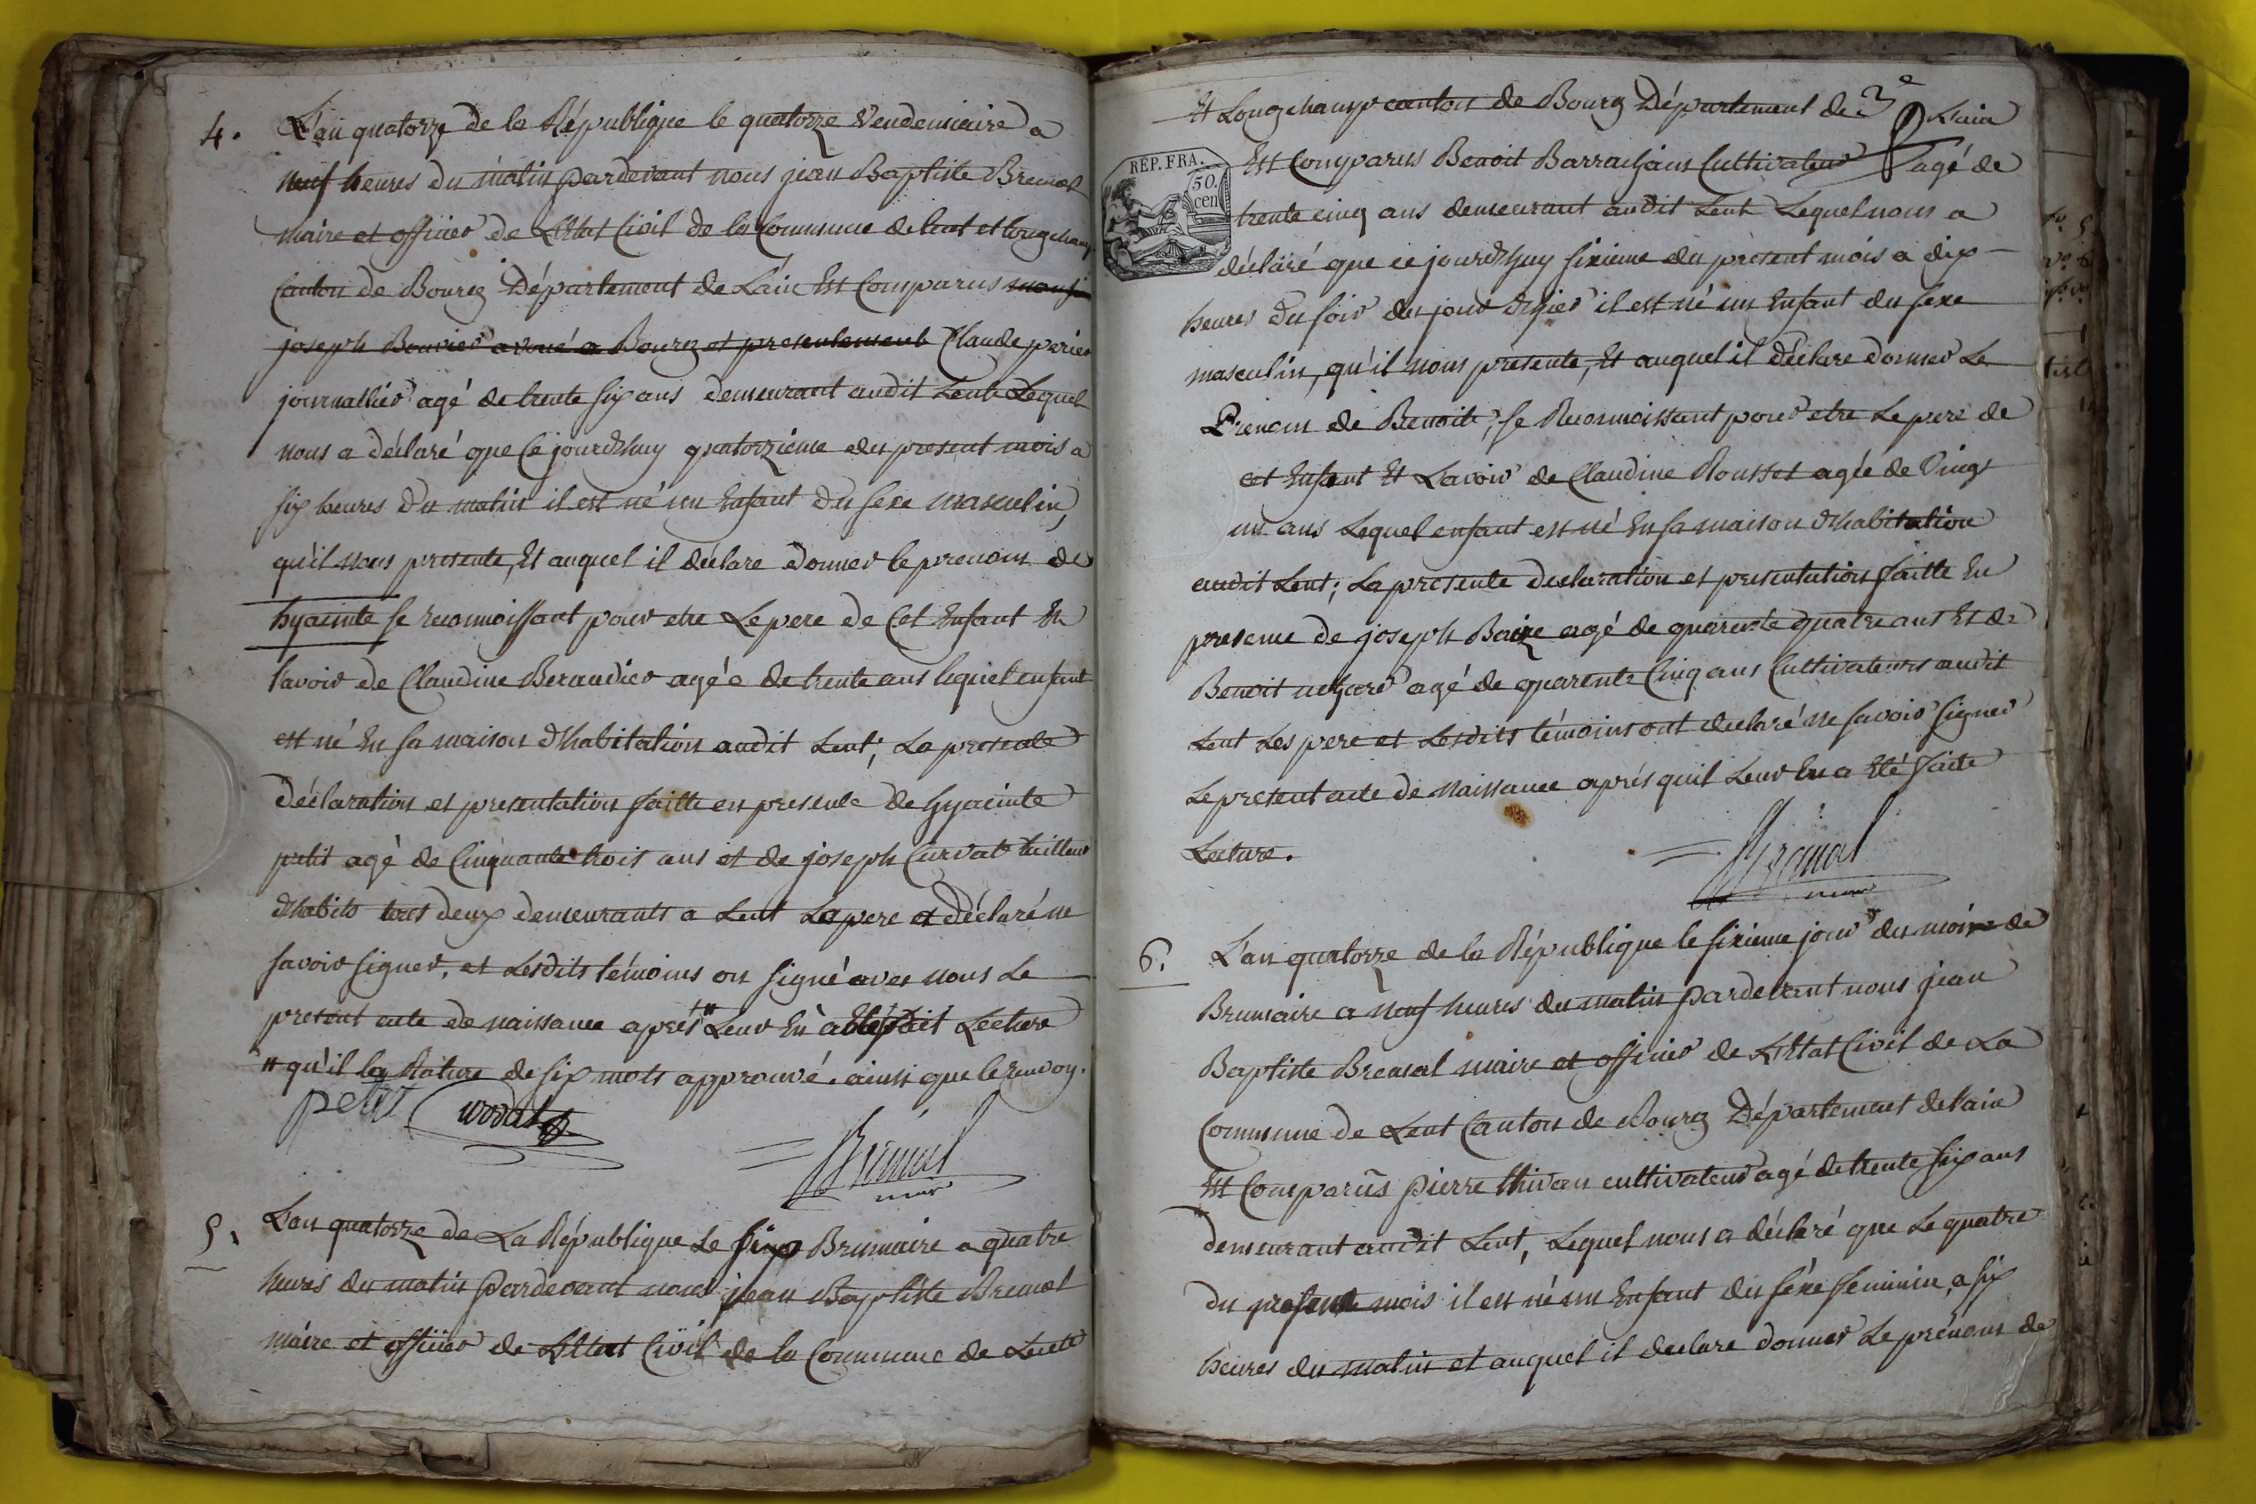 4. L'an quatorze de la République le quatorze Vendemiaire a
neuf heures du matin pardevant nous jean Baptiste Bremal
maire et officier de L'Etat Civil de la Commune de Lent et Longchamp
Canton de Bourg Département de L'ain Est Comparus
joseph Bouvier avoué a Bourg et presentement Claude perier
journallier agé de trente six ans demeurant audit Lent Lequel
nous a déclaré que Ce jourd'huy quatorzieme du present mois a
six heures du matin il est né un Enfant du sexe masculin,
qu'il nous presente, Et auquel il declare donner le prenom de
hyacinte se reconnoissant pour etre Le pere de Cet Enfant Et
Lavoir de Claudine Beraudier agée de trente ans lequel enfant
est né En sa maison d'habitation audit Lent; La presente
déclaration et presentation faitte en presence de hyacinte
petit agé de Cinquante trois ans et de joseph Curvat tailleur
d'habits tous deux demeurants a Lent Le pere a déclaré ne
savoir signer, et Lesdits témoins on signé avec nous Le
present acte de naissance aprés " Leur En a Eté fait Lecture
" qu'il la Rature de six mots approuvé. ainsi que le renvoy.
petit
Bremal
maire
5. L'an quatorze de La République Le six Brumaire a quatre
heures du matin Pardevant nous jean Baptiste Bremal
maire et officier de L'Etat Civil de la Commune de Lent
Et Longchamp canton de Bourg Département de 3e L'ain
REP. FRA.
50. cen
Est Comparus Benoit Barrachain Cultivateur agé de
trente cinq ans demeurant audit Lent Lequel nous a
déclaré que ce jourd'huy sixieme du present mois a dix
heures du soir du jour d'hier il est né un Enfant du sexe
masculin, qu'il nous presente, Et auquel il déclare donner Le
Prenom de Benoit, se Reconnoissant pour etre Le pere de
cet Enfant Et Lavoir de Claudine Rousset agée de Vingt
un ans Lequel enfant est né En sa maison d'habitation
audit Lent; La presente declaration et presentation faitte En
presence de joseph agé de quarente quatre ans Et de
Benoit agé de quarente Cinq ans Cultivateurs audit
Lent Les pere et Lesdits témoins ont declaré ne savoir signer
Le present acte de Naissance aprés quil Leur En a Eté faite
Lecture.
Bremal
maire
6. L'an quatorze de la République le sixieme jour du mois de
Brumaire a neuf heures du matin Pardevant nous jean
Baptiste Bremal maire et officier de L'Etat Civil de La
Commune de Lent Canton de Bourg Département de l'ain
Est Comparus pierre thivan cultivateur agé de trente six ans
demeurant audit Lent, Lequel nous a déclaré que Le quatre
du present mois il est né un Enfant du séxe feminin, a six
heures du matin et auquel il declare donner Le prénom de